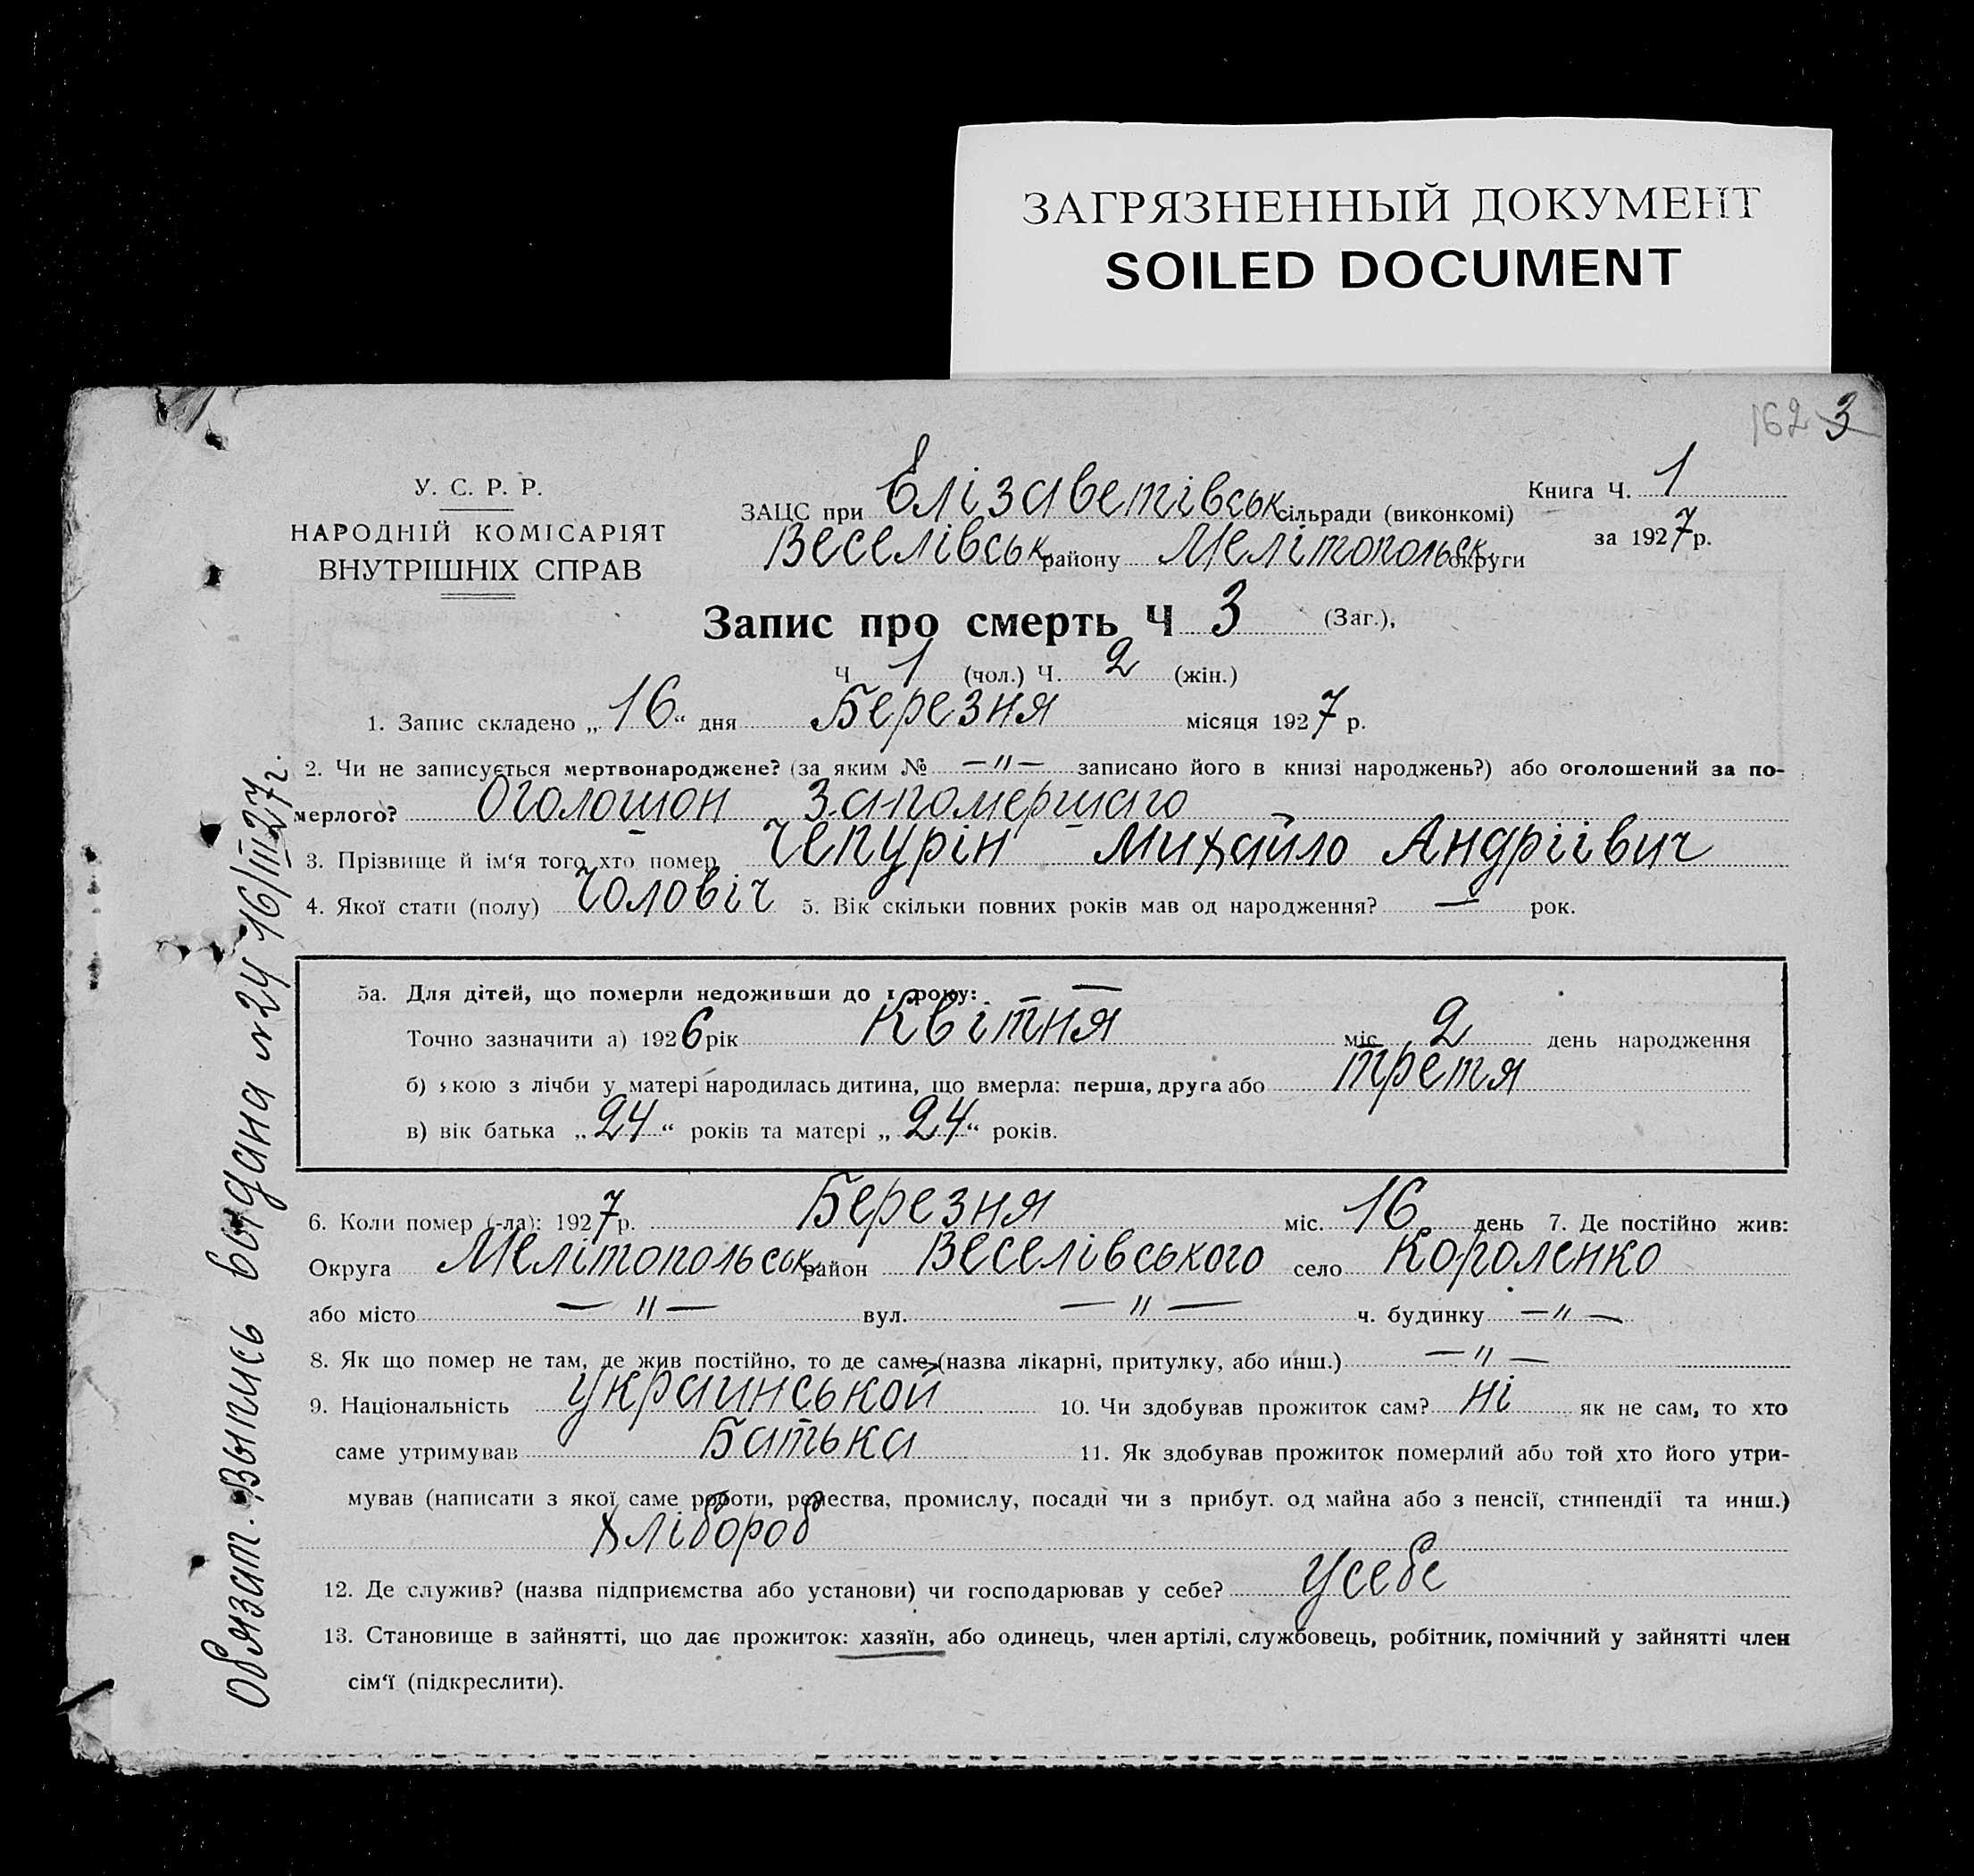 ЗАГРЯЗНЕННЫЙ ДОКУМЕНТ
SOILED DOCUMENT
162 3
У. С. Р. Р.
НАРОДНІЙ КОМІСАРІЯТ
ВНУТРІШНІХ СПРАВ
ЗАЦС при Елізаветівськ сільради (виконкомі)
Веселівськ району Мелітопольськ округи
Книга Ч. 1
за 1927 р.
Запис про смерть Ч 3 (Заг.),
Ч 1 (чол.) Ч. 2 (жін.)
1. Запис складено „16“ дня Березня місяця 1927 р.
2. Чи не записується мертвонароджене? (за яким № —〃— записано його в книзі народжень?) або оголошений за по-
мерлого? Оголошон запомершаго
3. Прізвище й ім‘я того хто помер Чепурін Михайло Андріівич
4. Якої стати (полу) Чоловіч 5. Вік скільки повних років мав од народження? — рок.
5а. Для дітей, що померли недоживши до 1 року: —
Точно зазначити а) 1926 рік Квітня міс 2 день народження
б) якою з лічби у матері народилась дитина, що вмерла: перша, друга або третя
в) вік батька „24“ років та матері „24“ років.
6. Коли помер (-ла): 1927 р. Березня міс. 16 день 7. Де постійно жив:
Округа Мелітопольськ район Веселівського село Короленко
або місто —〃— вул. —〃— ч. будинку —〃—
8. Як що помер не там, де жив постійно, то де саме (назва лікарні, притулку, або инш.) —〃—
9. Національність украинськой 10. Чи здобував прожиток сам? ні як не сам, то хто
саме утримував Батька 11. Як здобував прожиток померлий або той хто його утри-
мував (написати з якої саме роботи, ремества, промислу, посади чи з прибут. од майна або з пенсії, стипендії та инш.)
Хлібороб
12. Де служив? (назва підприємства або установи) чи господарював у себе? усебе
13. Становище в зайнятті, що дає прожиток: хазяїн, або одинець, член артілі, службовець, робітник, помічний у зайнятті член
сім‘ї (підкреслити).
Обязат. Выпись выдана №24 16/III 27 г.